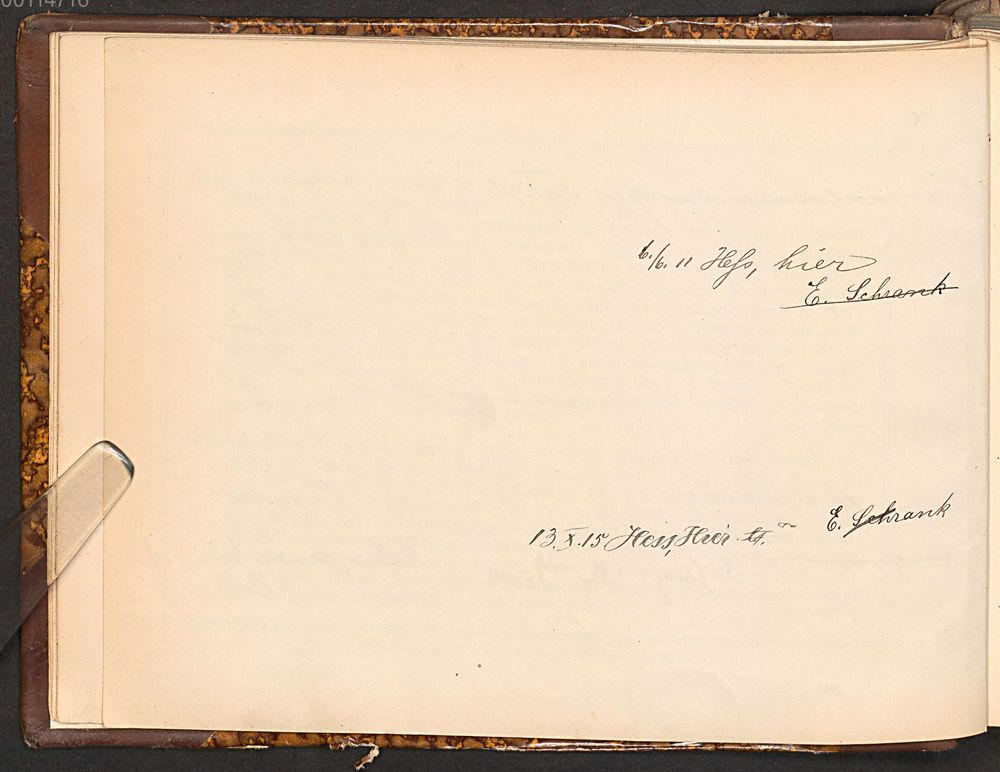 00114716
6./6. 11 Heß, hier
E. Schrank
E. Schrank
13.X.15 Hess, Hier